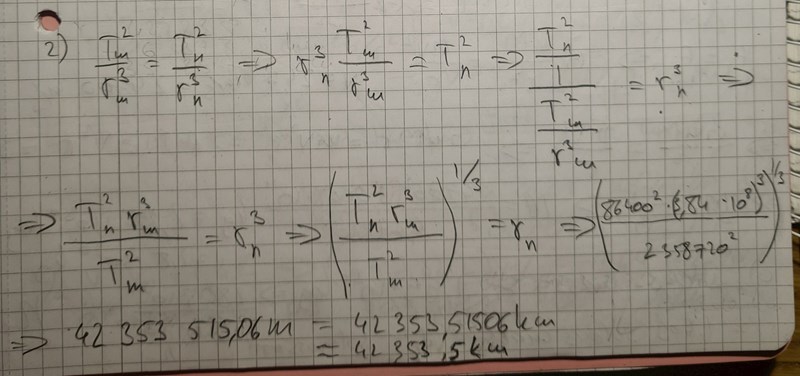 2) T_m²/r_m³ = T_n²/r_n³ ⇒ r_n³ T_m²/r_m³ = T_n² ⇒ (T_n²/1)/(T_m²/r_m³) = r_n³ ⇒
⇒ T_n² r_m³/T_m² = r_n³ ⇒ (T_n² r_m³/T_m²)^1/3 = r_n ⇒ (86400² · (3,84 · 10⁸)³/2358720²)^1/3
⇒ 42 353 515,06 m = 42 353,51506 km
= 42 353,5 km